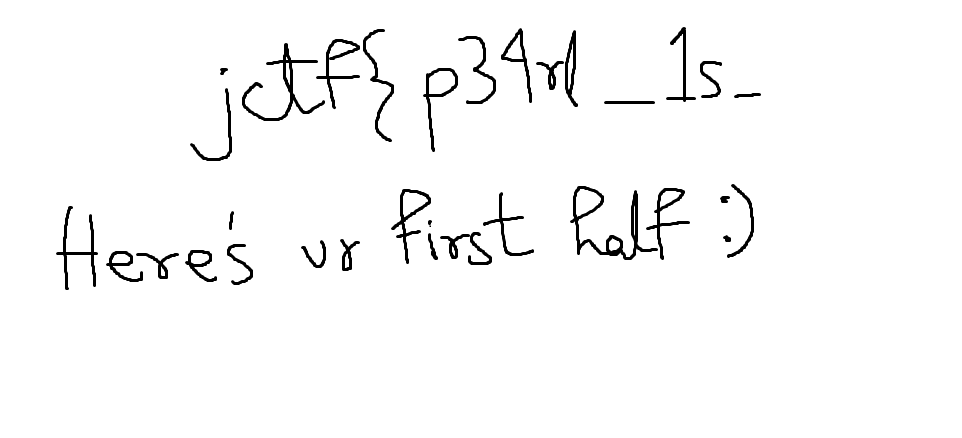 jctf{p34rl_1s_
Here's ur first half :)